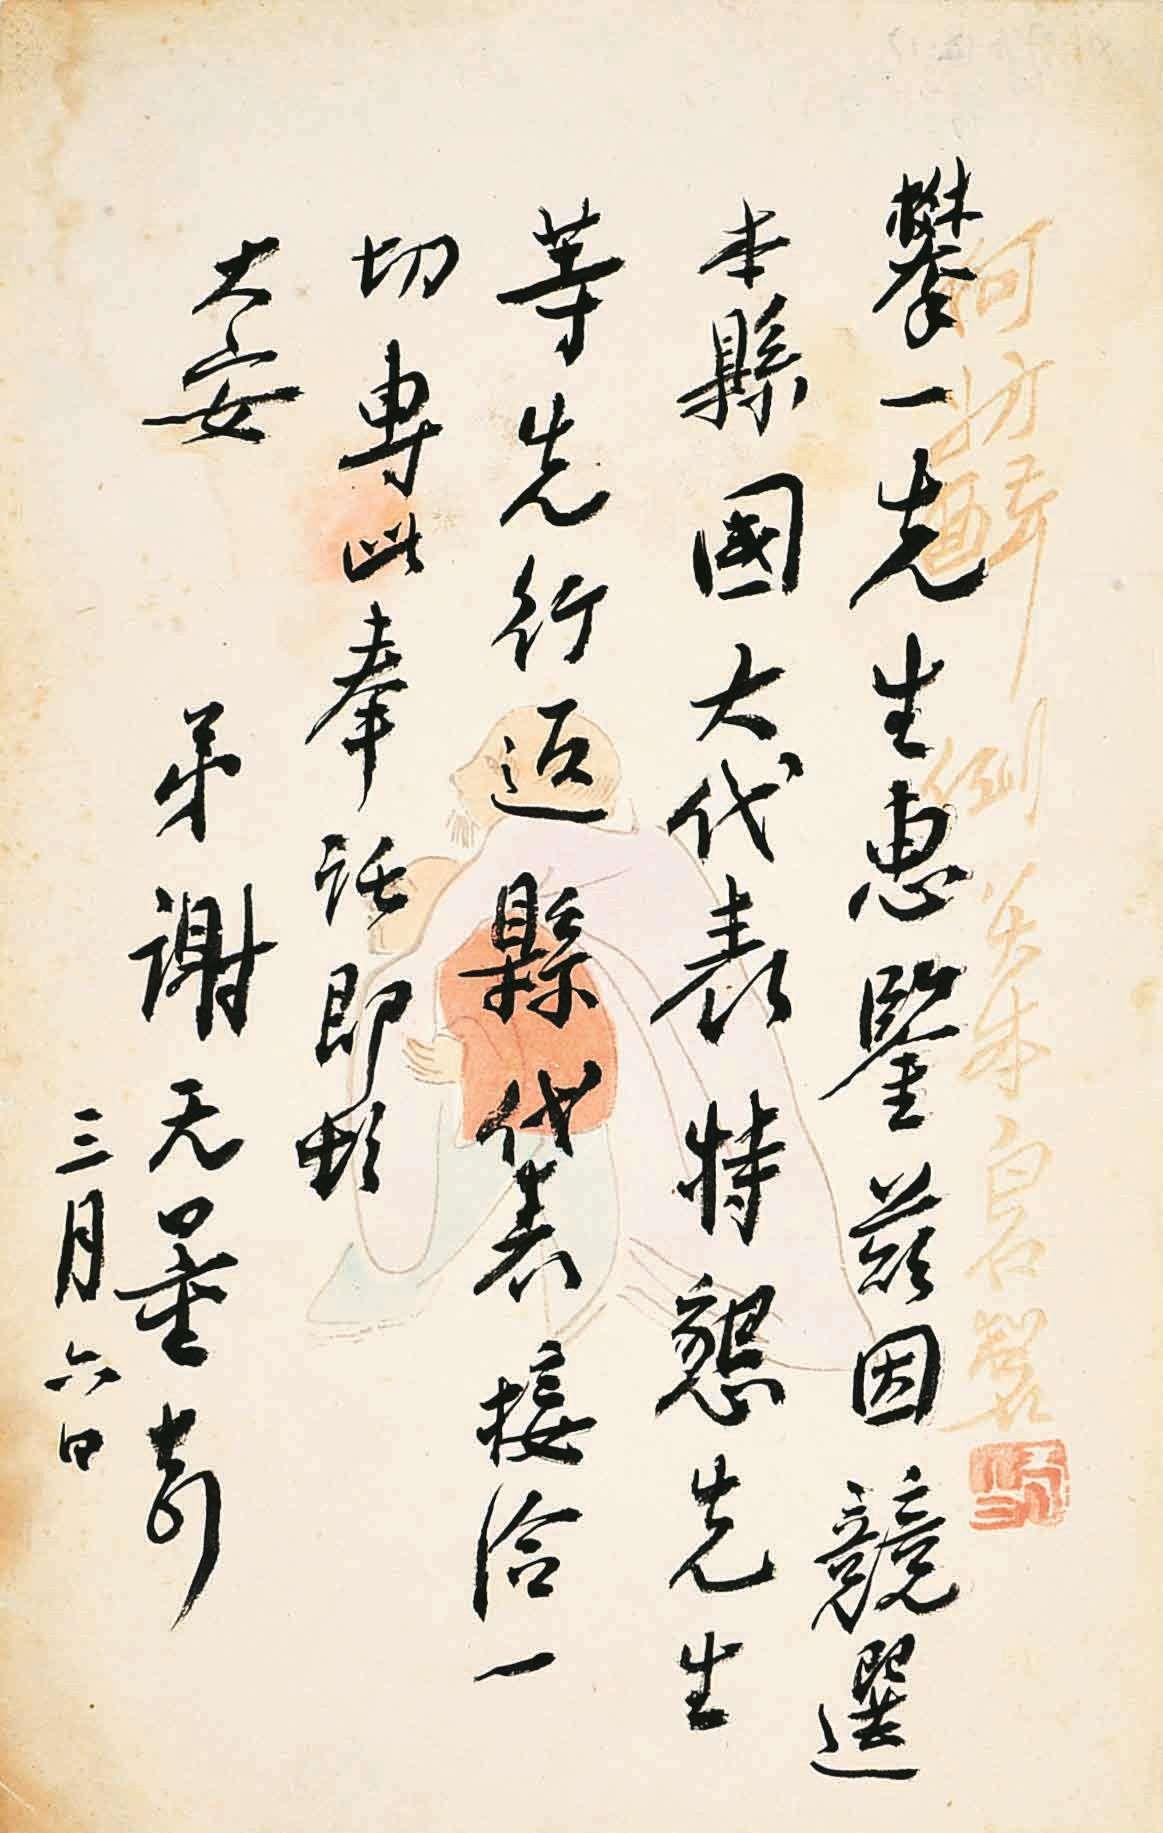 攀一先生惠鑒茲因競選
本縣國大代表特懇先生
等先行返縣代表接洽一
切專此奉託即頌
大安
弟謝无量
三月六日
何妨醉倒 白石